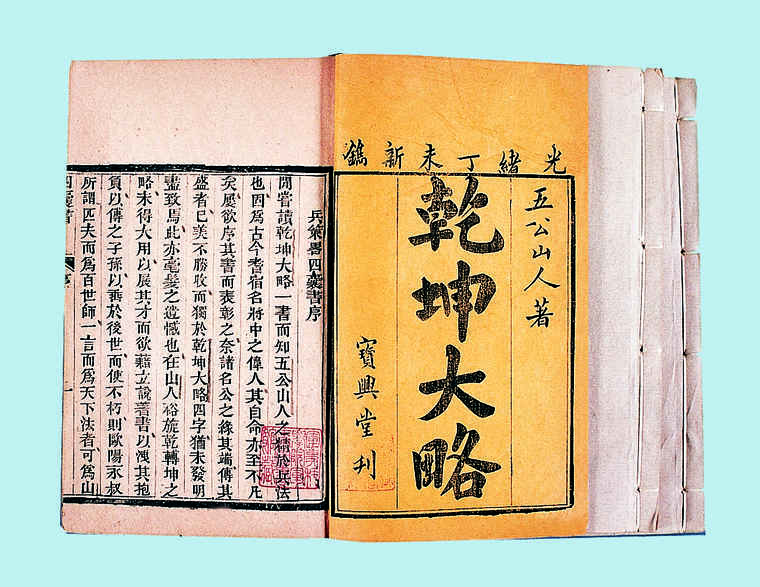 光緒丁未新鐫
五公山人著
乾坤大略
寶興堂刊
畧四書序
間嘗讀乾坤大略一書而知五公山人之精於兵法
也因爲古今耆宿名將中之偉人其自命亦至不凡
矣屢欲序其書而表彰之奈諸名公之緣其端傳其
盛者已美不勝收而獨於乾坤大略四字猶未發明
盡致焉此亦毫髮之遺憾也在山人裕旋乾轉坤之
略未得大用以展其才而欲藉立說著書以洩其抱
負以傳之子孫以垂於後世而使不朽則歐陽永叔
所謂匹夫而爲百世師一言而爲天下法者可爲山